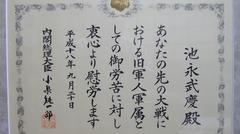 池永武慶殿
あなたの先の大戦に
おける旧軍人軍属と
しての御労苦に対し
衷心より慰労します
平成十八年九月二十日
内閣総理大臣 小泉純一郎